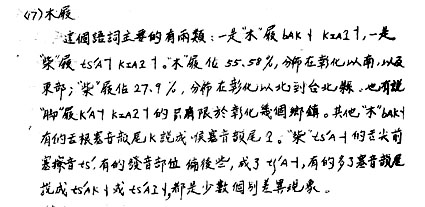 (17)木屐
這個語詞主要的有兩類:一是"木"屐bAK˧ kIAI˧,一是
"柴"屐ts'A˧ kIAI˧。"木"屐佔55.58%,分佈在彰化以南,以及
東部;"柴"屐佔27.9%,分佈在彰化以北到台北縣。也有說
"腳"屐K'A˧ kIAI˧的只侷限於彰化幾個鄉鎮。其他"木"bAK˧
有的舌根塞音韻尾K說成喉塞音韻尾ʔ。"柴"ts'A˧的舌尖前
塞擦音ts',有的發音部位偏後些,成了tʃ'A˧,有的多了塞音韻尾
說成ts'AK˧或ts'AI˧,都是少數個別差異現象。